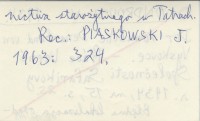 nictwa starożytnego w Tatrach.
Rec.: PIASKOWSKI J.
1963: 324.